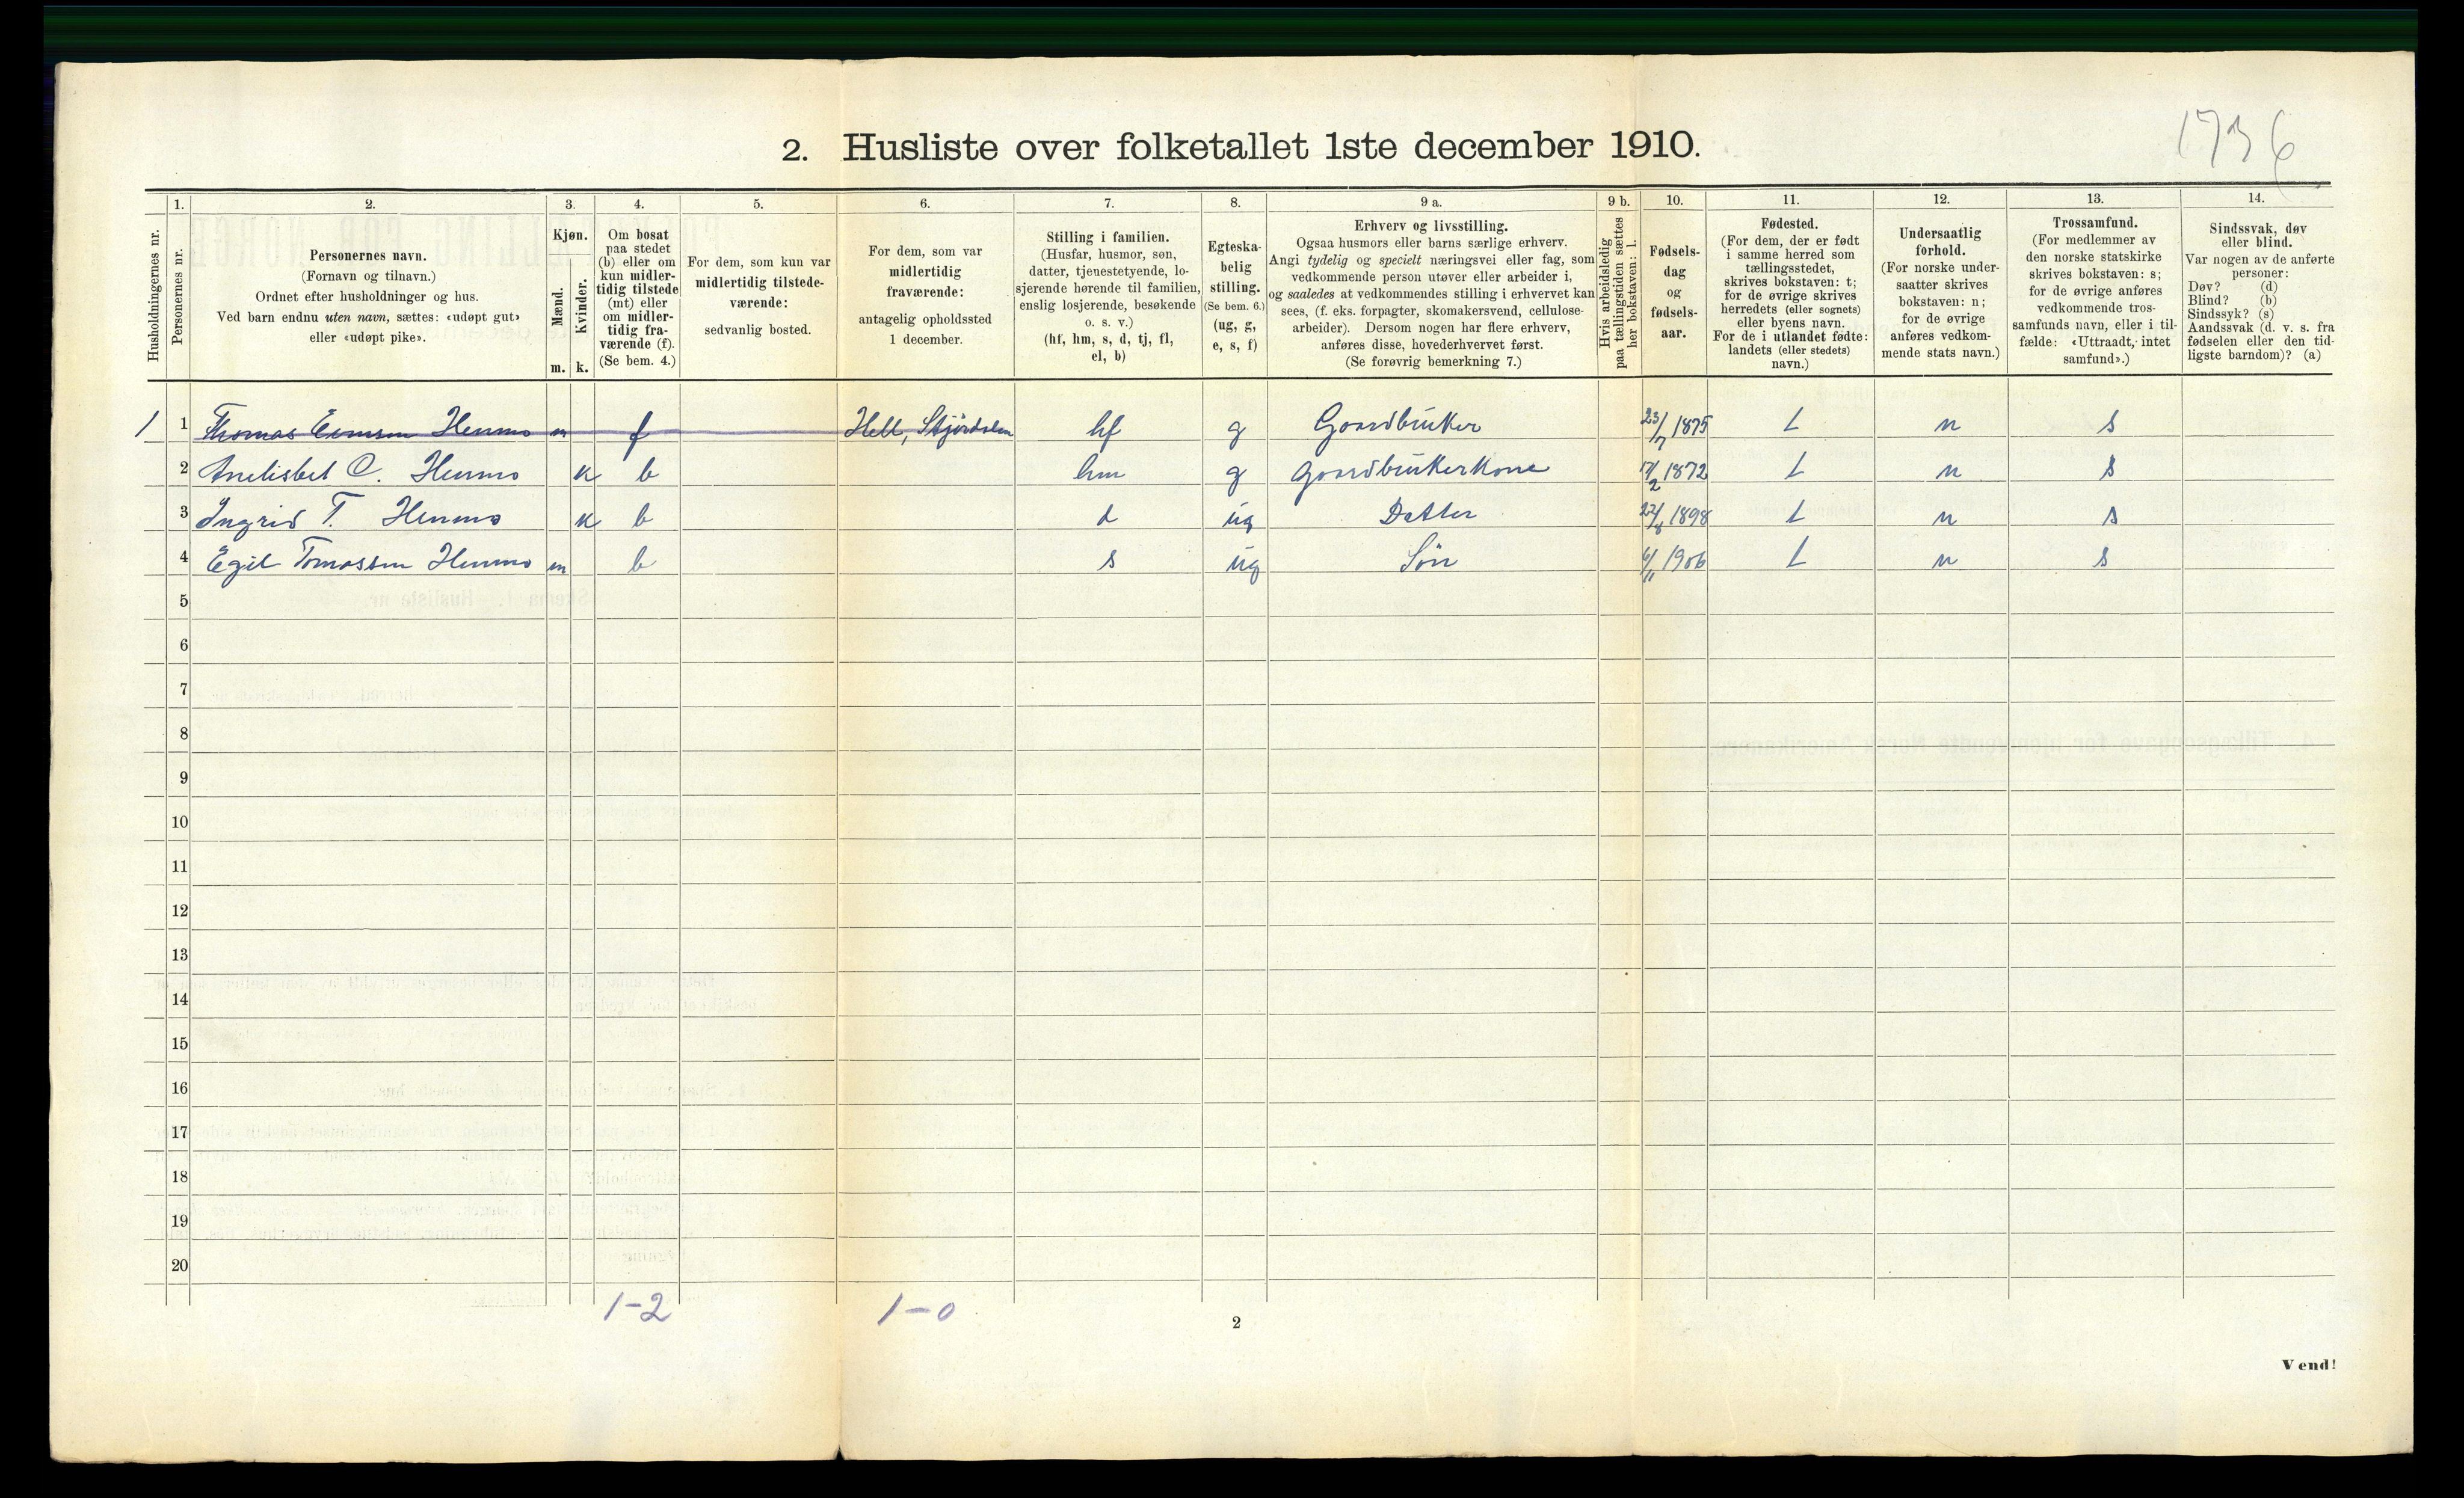 1736
2. Husliste over folketallet 1ste december 1910.
Husholdningernes nr.
1.
Personernes nr.
2.
Personernes navn.
(Fornavn og tilnavn.)
Ordnet efter husholdninger og hus.
Ved barn endnu uten navn, sættes: «udøpt gut»
eller «udøpt pike».
3.
Kjøn.
Mænd.
Kvinder.
m. k.
4.
Om bosat
paa stedet
(b) eller om
kun midler-
tidig tilstede
(mt) eller
om midler-
tidig fra-
værende (f).
(Se bem. 4.)
5.
For dem, som kun var
midlertidig tilstede-
værende:
sedvanlig bosted.
6.
For dem, som var
midlertidig
fraværende:
antagelig opholdssted
1 december.
7.
Stilling i familien.
(Husfar, husmor, søn,
datter, tjenestetyende, lo-
sjerende hørende til familien,
enslig losjerende, besøkende
o. s. v.)
(hf, hm, s, d, tj, fl,
el, b)
8.
Egteska-
belig
stilling.
(Se bem. 6.)
(ug, g,
e, s, f)
9 a.
Erhverv og livsstilling.
Ogsaa husmors eller barns særlige erhverv.
Angi tydelig og specielt næringsvei eller fag, som
vedkommende person utøver eller arbeider i,
og saaledes at vedkommendes stilling i erhvervet kan
sees, (f. eks. forpagter, skomakersvend, cellulose-
arbeider). Dersom nogen har flere erhverv,
anføres disse, hovederhvervet først.
(Se forøvrig bemerkning 7.)
9 b.
Hvis arbeidsledig
paa tællingstiden sættes
her bokstaven: l.
10.
Fødsels-
dag
og
fødsels-
aar.
11.
Fødested.
(For dem, der er født
i samme herred som
tællingsstedet,
skrives bokstaven: t;
for de øvrige skrives
herredets (eller sognets)
eller byens navn.
For de i utlandet fødte:
landets (eller stedets)
navn.)
12.
Undersaatlig
forhold.
(For norske under-
saatter skrives
bokstaven: n;
for de øvrige
anføres vedkom-
mende stats navn.)
13.
Trossamfund.
(For medlemmer av
den norske statskirke
skrives bokstaven: s;
for de øvrige anføres
vedkommende tros-
samfunds navn, eller i til-
fælde: «Uttraadt, intet
samfund».)
14.
Sindssvak, døv
eller blind.
Var nogen av de anførte
personer:
Døv? (d)
Blind? (b)
Sindssyk? (s)
Aandssvak (d. v. s. fra
fødselen eller den tid-
ligste barndom)? (a)
1 1 Thomas Hemmo m f Hell, Stjørdalen hf g Gaardbruker 23/7 1875 t n s
2 Anelisbet O. Hemmo k b hm g Gaardbrukerkone 17/2 1872 t n s
3 Ingrid T. Hemmo k b d ug Datter 22/8 1898 t n s
4 Egil Tomassen Hemmo m b s ug Søn 6/11 1906 t n s
5
6
7
8
9
10
11
12
13
14
15
16
17
18
19
20
1-2 1-0
2
Vend!